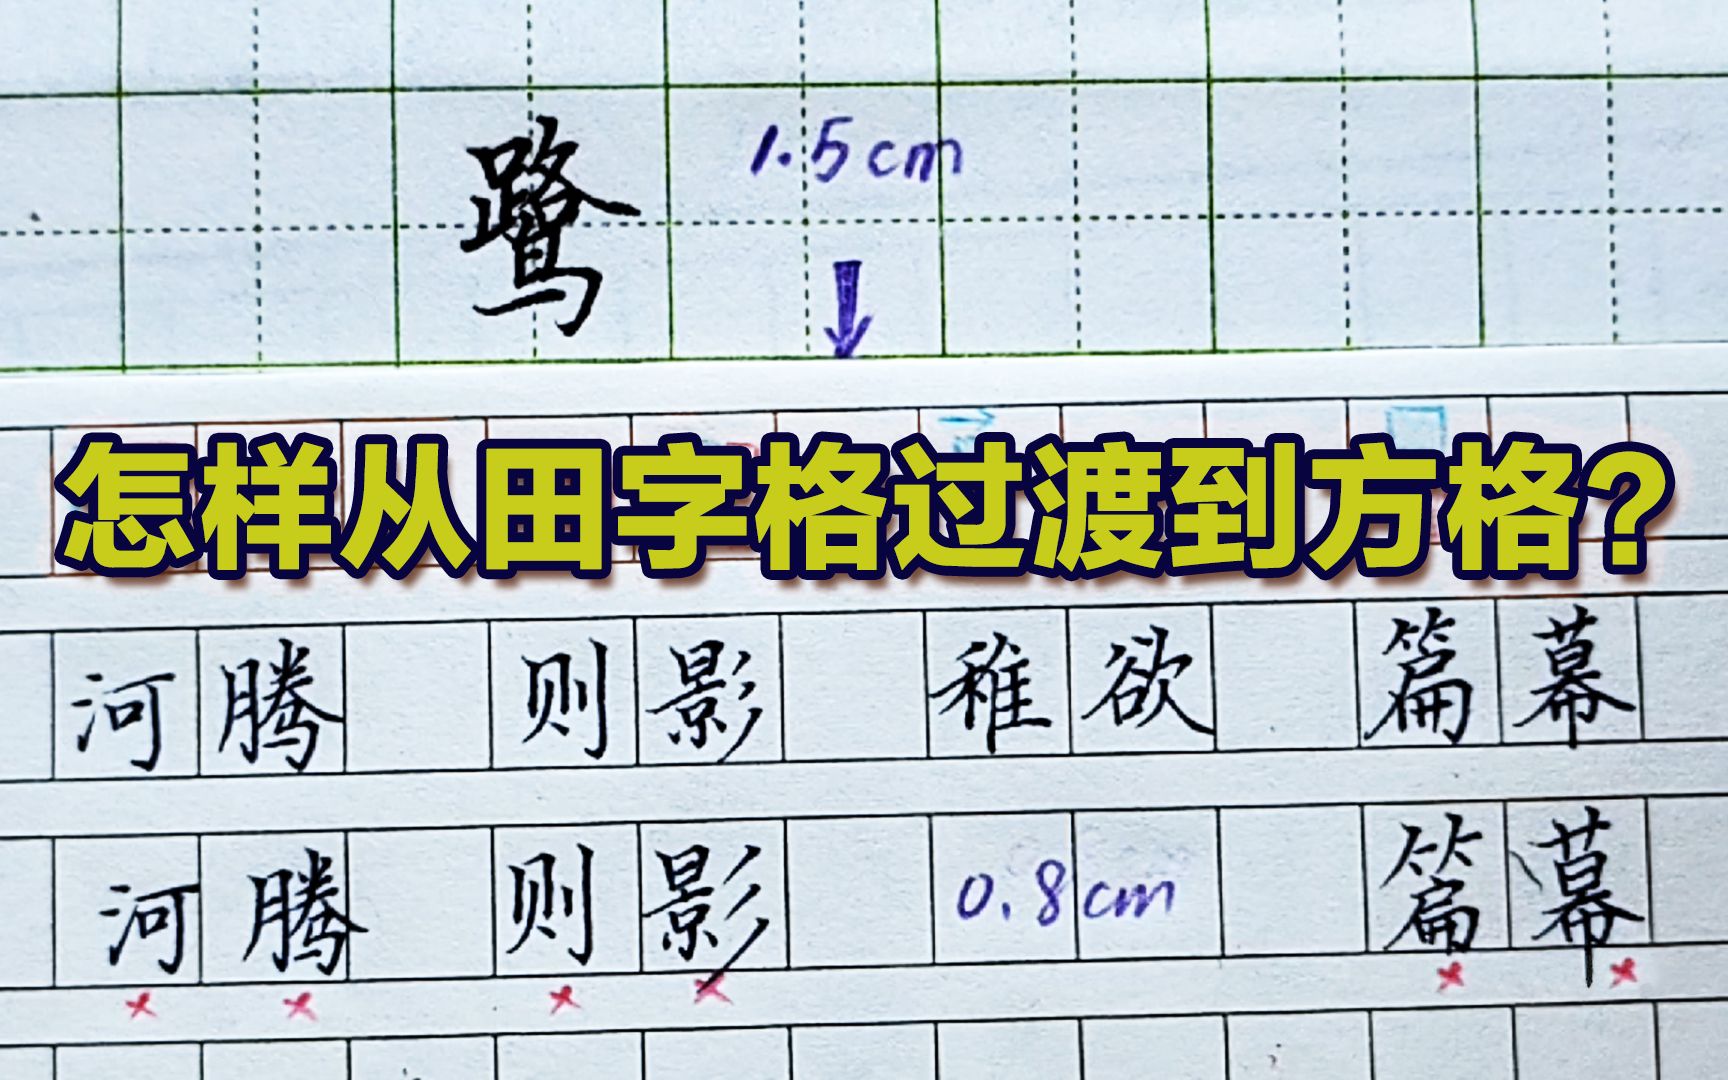 鹭 1.5cm
怎样从田字格过渡到方格?
河腾 则影 稚欲 篇幕
河腾 则影 0.8cm 篇幕